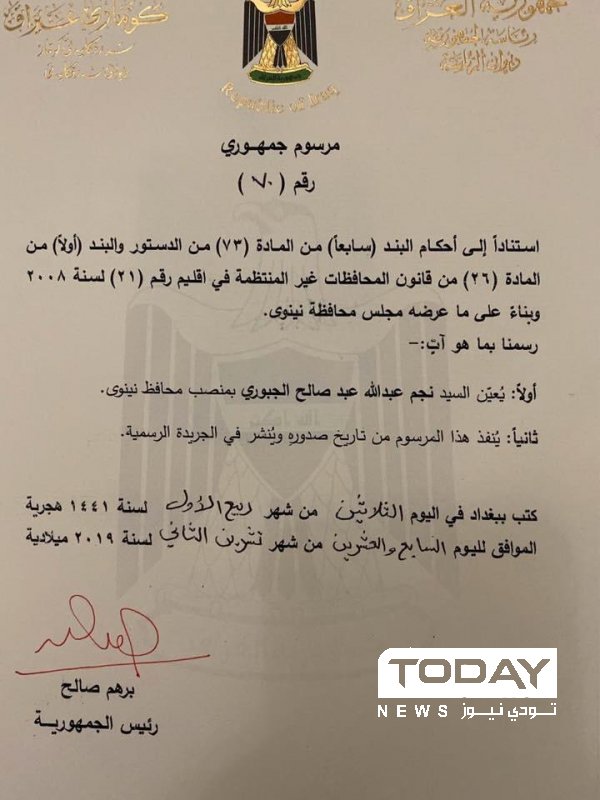 جمهورية العراق
رئاسة الجمهورية
ديوان الرئاسة
كۆماری عێراق
Republic of Iraq
مرسوم جمهوري
رقم (٧٠)
استناداً إلى أحكام البند (سابعاً) من المادة (٧٣) من الدستور والبند (أولاً) من
المادة (٢٦) من قانون المحافظات غير المنتظمة في اقليم رقم (٢١) لسنة ٢٠٠٨
وبناءً على ما عرضه مجلس محافظة نينوى.
رسمنا بما هو آتٍ:-
أولاً: يُعيّن السيد نجم عبدالله عبد صالح الجبوري بمنصب محافظ نينوى.
ثانياً: يُنفذ هذا المرسوم من تاريخ صدورهِ ويُنشر في الجريدة الرسمية.
كتب ببغداد في اليوم الثلاثين من شهر ربيع الأول لسنة ١٤٤١ هجرية
الموافق لليوم السابع والعشرين من شهر تشرين الثاني لسنة ٢٠١٩ ميلادية
برهم صالح
رئيس الجمهورية
TODAY
NEWS تودي نيوز